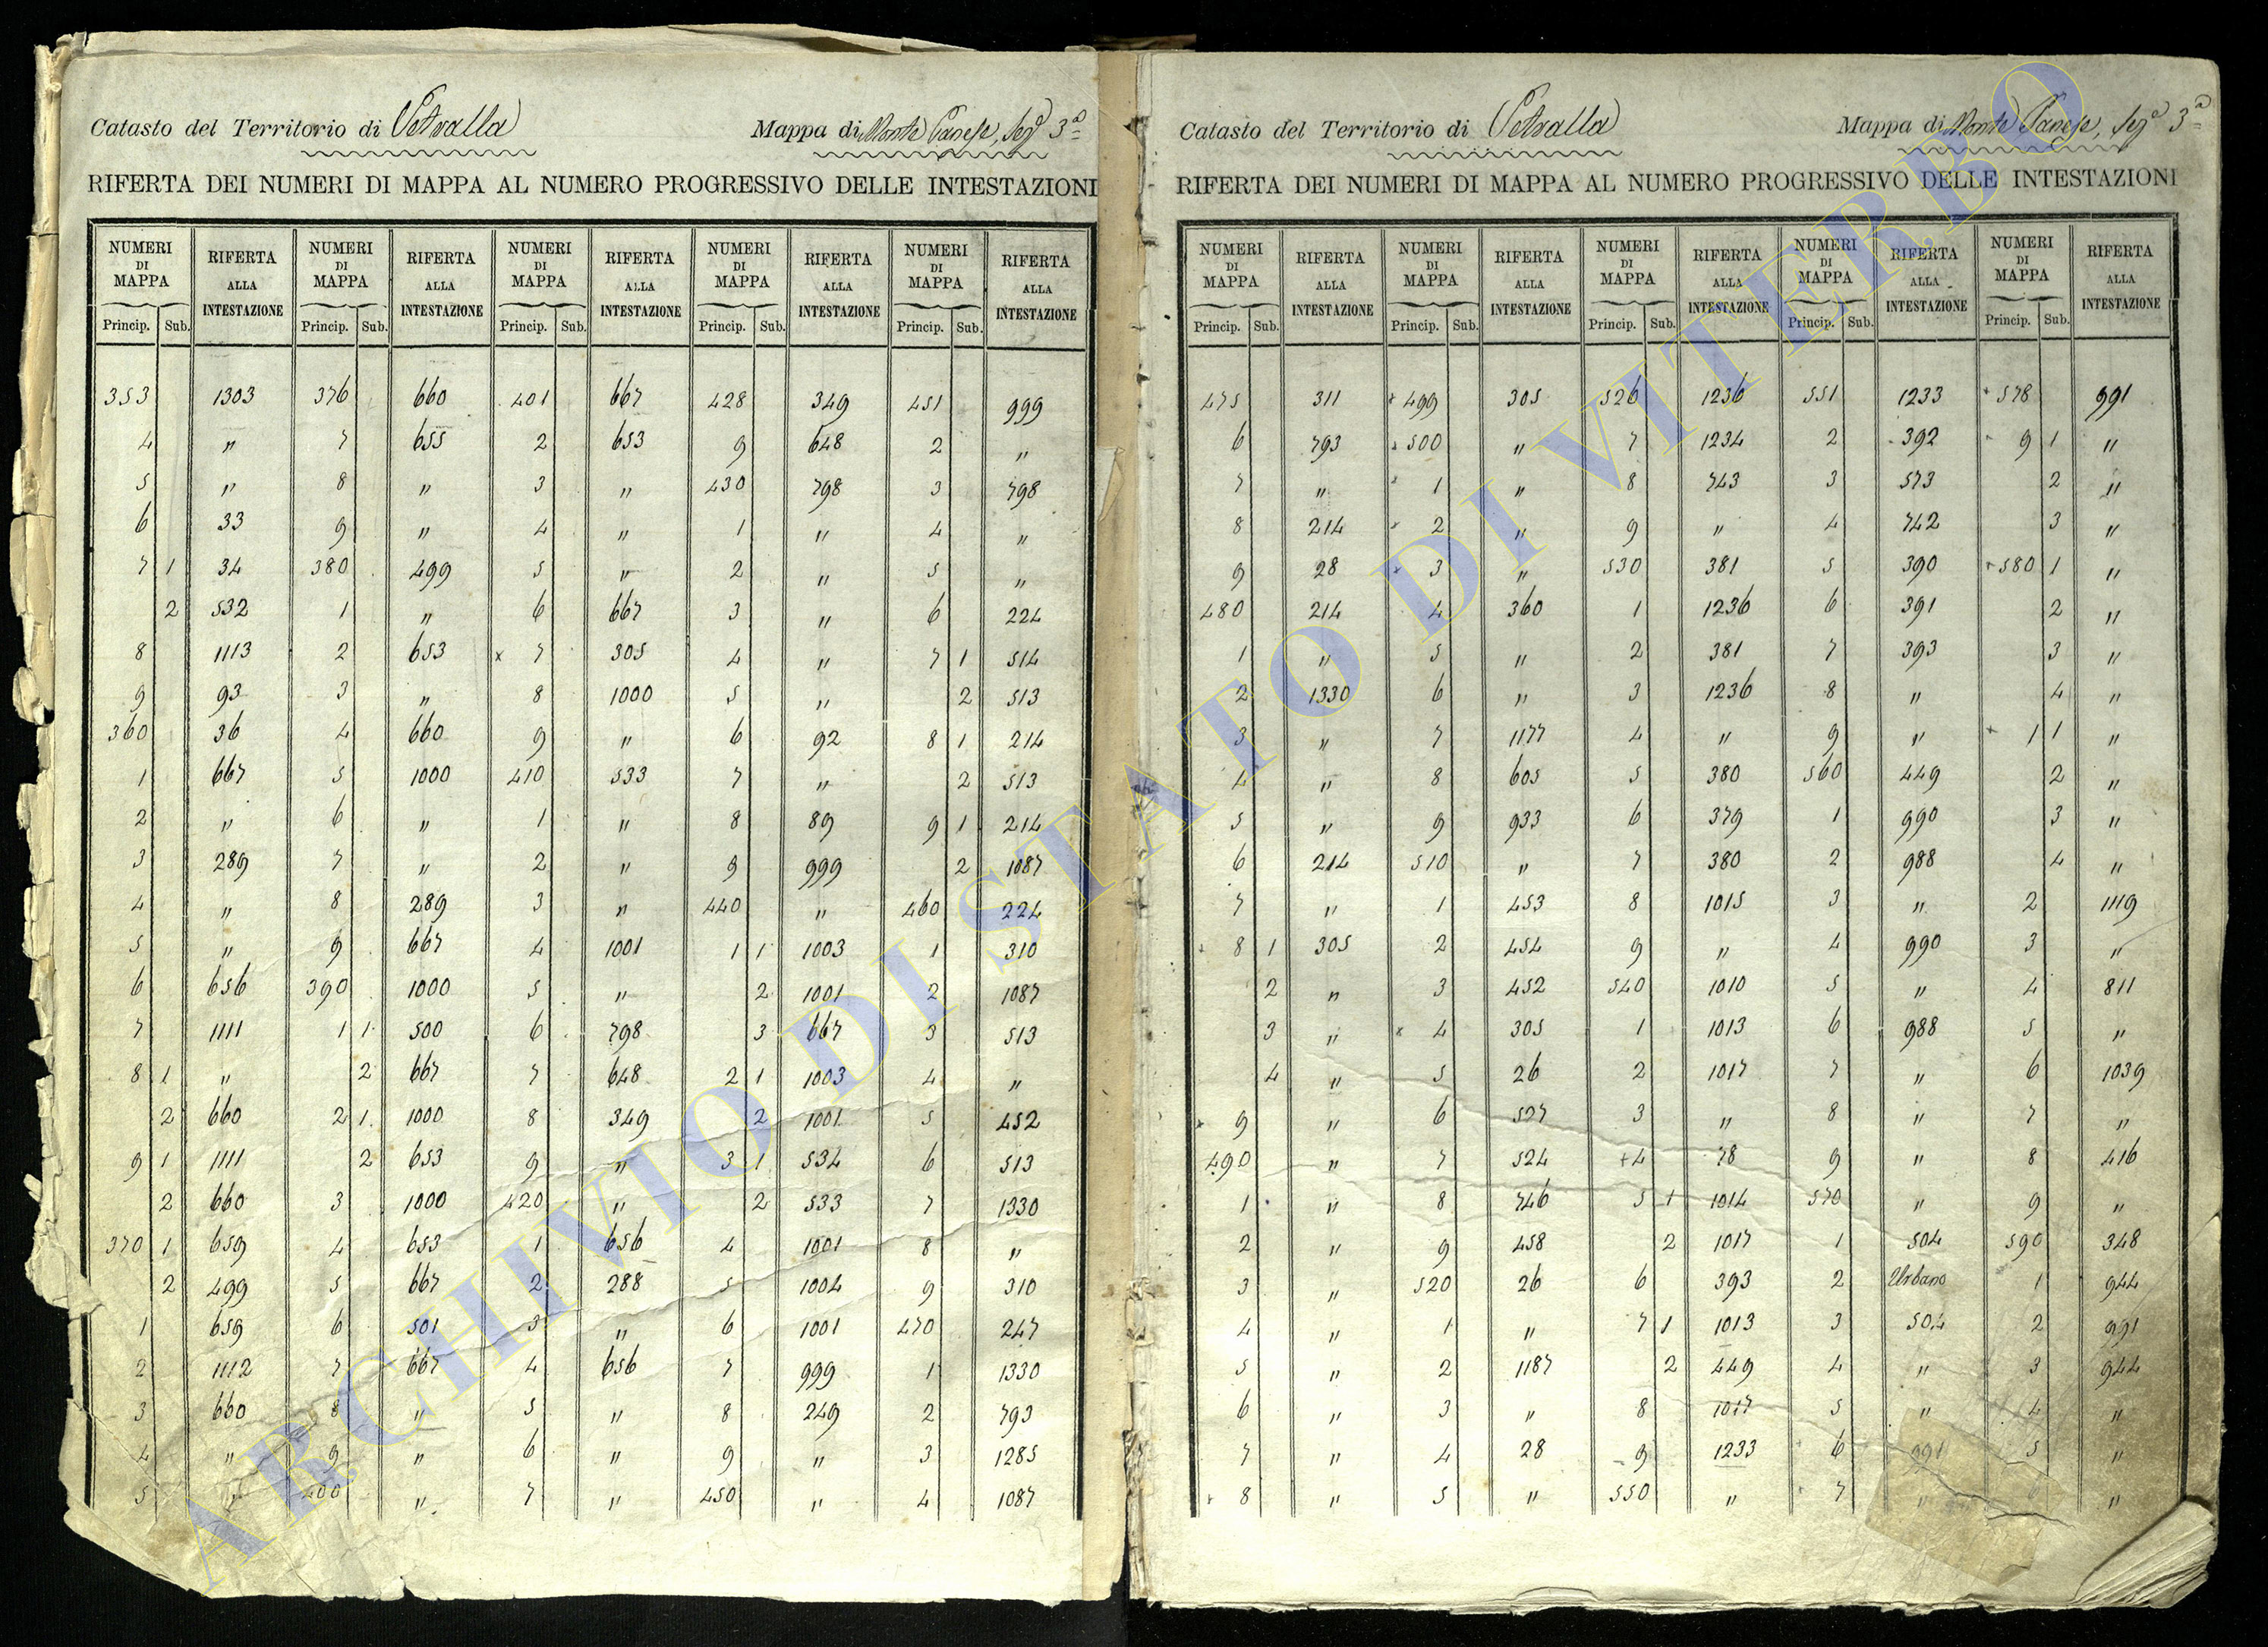 Catasto del Territorio di Vetralla Mappa di Monte Panese, Seg.a 3a
RIFERTA DEI NUMERI DI MAPPA AL NUMERO PROGRESSIVO DELLE INTESTAZIONI
NUMERI DI MAPPA RIFERTA ALLA INTESTAZIONE NUMERI DI MAPPA RIFERTA ALLA INTESTAZIONE NUMERI DI MAPPA RIFERTA ALLA INTESTAZIONE NUMERI DI MAPPA RIFERTA ALLA INTESTAZIONE NUMERI DI MAPPA RIFERTA ALLA INTESTAZIONE
Princip. Sub. Princip. Sub. Princip. Sub. Princip. Sub. Princip. Sub.
353 1303 376 660 401 667 428 349 451 999
4 " 7 655 2 653 9 648 2 "
5 " 8 " 3 " 430 798 3 798
6 33 9 " 4 " 1 " 4 "
7 1 34 380 499 5 " 2 " 5 "
2 532 1 " 6 667 3 " 6 224
8 1113 2 653 x 7 305 4 " 7 1 514
9 93 3 " 8 1000 5 " 2 513
360 36 4 660 9 " 6 92 8 1 214
1 667 5 1000 410 533 7 " 2 513
2 " 6 " 1 " 8 89 9 1 214
3 289 7 " 2 " 9 999 2 1087
4 " 8 289 3 " 440 " 460 224
5 " 9 667 4 1001 1 1 1003 1 310
6 656 390 1000 5 " 2 1001 2 1087
7 1111 1 1 500 6 798 3 667 3 513
8 1 " 2 667 7 648 2 1 1003 4 "
2 660 2 1 1000 8 349 2 1001 5 452
9 1 1111 2 653 9 " 3 1 534 6 513
2 660 3 1000 420 " 2 533 7 1330
370 1 659 4 653 1 656 4 1001 8 "
2 499 5 667 2 288 5 1004 9 310
1 659 6 501 3 " 6 1001 470 247
2 1112 7 667 4 656 7 999 1 1330
3 660 8 " 5 " 8 249 2 793
4 " 9 " 6 " 9 " 3 1285
5 " 400 " 7 " 450 " 4 1087
Catasto del Territorio di Vetralla Mappa di Monte Panese, Seg.a 3a
RIFERTA DEI NUMERI DI MAPPA AL NUMERO PROGRESSIVO DELLE INTESTAZIONI
NUMERI DI MAPPA RIFERTA ALLA INTESTAZIONE NUMERI DI MAPPA RIFERTA ALLA INTESTAZIONE NUMERI DI MAPPA RIFERTA ALLA INTESTAZIONE NUMERI DI MAPPA RIFERTA ALLA INTESTAZIONE NUMERI DI MAPPA RIFERTA ALLA INTESTAZIONE
Princip. Sub. Princip. Sub. Princip. Sub. Princip. Sub. Princip. Sub.
475 311 x 499 305 526 1236 551 1233 + 578 991
6 793 x 500 " 7 1234 2 392 9 1 "
7 " x 1 " 8 743 3 573 2 "
8 214 x 2 " 9 " 4 742 3 "
9 28 x 3 " 530 381 5 390 + 580 1 "
480 214 4 360 1 1236 6 391 2 "
1 " 5 " 2 381 7 393 3 "
2 1330 6 " 3 1236 8 " 4 "
3 " 7 1177 4 " 9 " + 1 1 "
4 " 8 605 5 380 560 449 2 "
5 " 9 933 6 379 1 990 3 "
6 214 510 " 7 380 2 988 4 "
7 " 1 453 8 1015 3 " 2 1119
+ 8 1 305 2 454 9 " 4 990 3 "
2 " 3 452 540 1010 5 " 4 811
3 " x 4 305 1 1013 6 988 5 "
4 " 5 26 2 1017 7 " 6 1039
x 9 " 6 527 3 " 8 " 7 "
490 " 7 524 + 4 78 9 " 8 416
1 " 8 746 5 1 1014 570 " 9 "
2 " 9 458 2 1017 1 504 590 348
3 " 520 26 6 393 2 Urbano 1 944
4 " 1 " 7 1 1013 3 504 2 991
5 " 2 1187 2 449 4 " 3 944
6 " 3 " 8 1017 5 " 4 "
7 " 4 28 9 1233 6 991 5 "
+ 8 " 5 " 550 " 7 " 6 "
ARCHIVIO DI STATO DI VITERBO